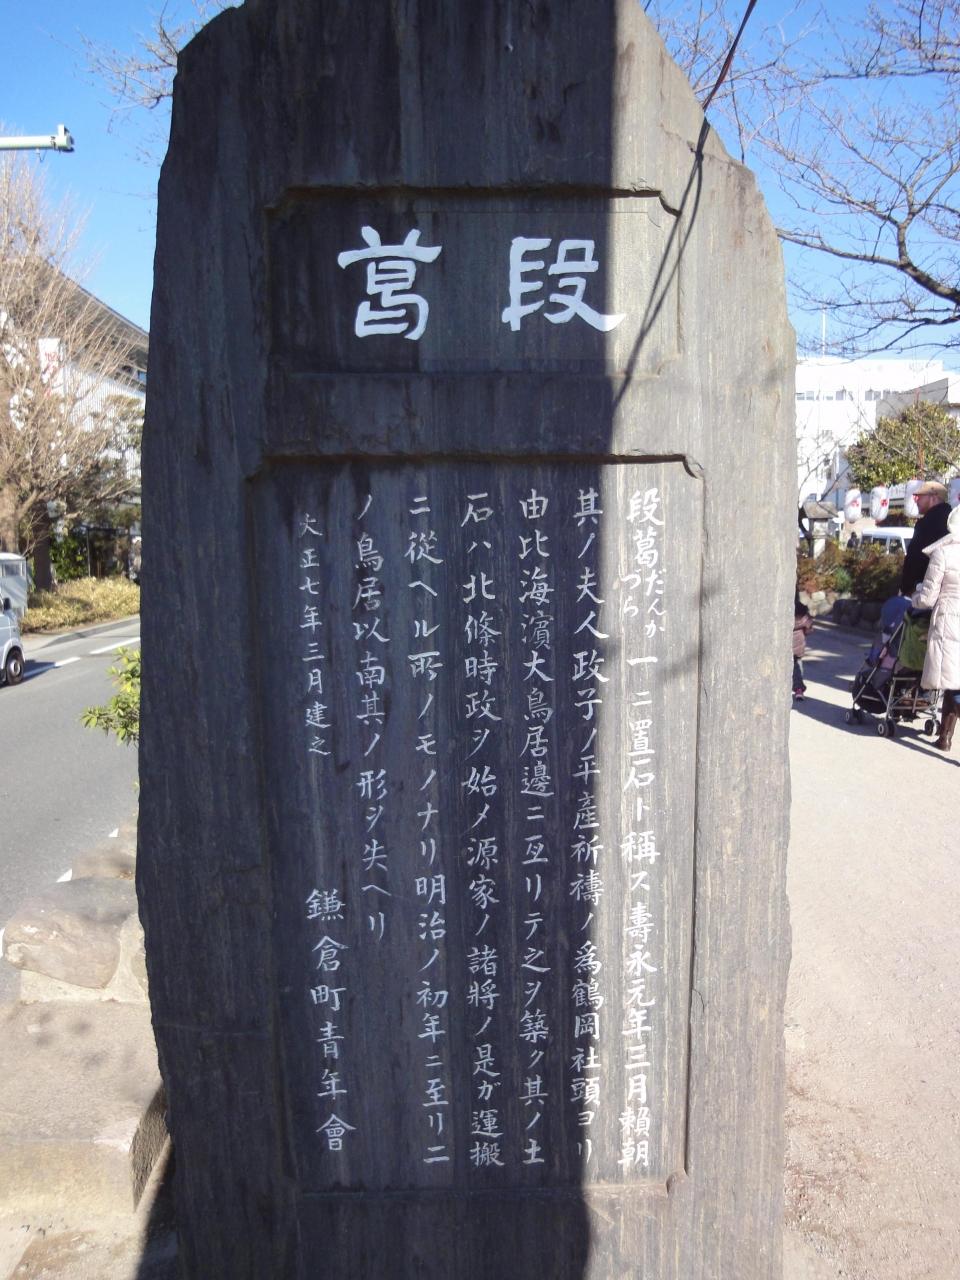 段葛
段葛だんかづら一ニ置石ト稱ス壽永元年三月賴朝
其ノ夫人政子ノ平產祈禱ノ爲鶴岡社頭ヨリ
由比海濱大鳥居邊ニ亙リテ之ヲ築ク其ノ土
石ハ北條時政ヲ始メ源家ノ諸將ノ是ガ運搬
ニ從ヘル所ノモノナリ明治ノ初年ニ至リ二
ノ鳥居以南其ノ形ヲ失ヘリ
大正七年三月建之
鎌倉町青年會